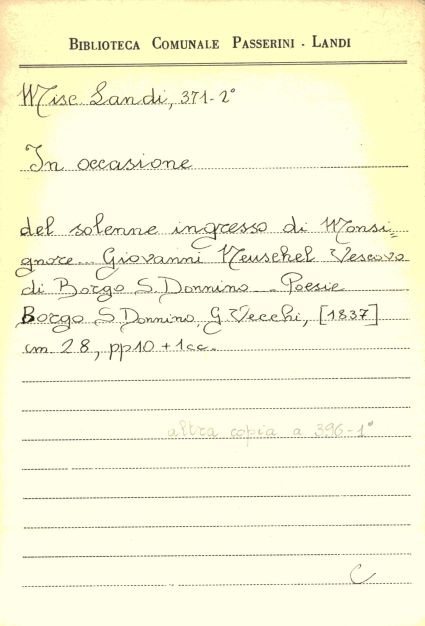 BIBLIOTECA COMUNALE PASSERINI - LANDI
Misc Landi, 371-2°
In occasione
del solenne ingresso di Monsi=
gnore... Giovanni Neuschel Vescovo
di Borgo S. Donnino - Poesie
Borgo S Donnino, G. Vecchi, [1837]
cm 28, pp 10 + 1 cc.
altra copia a 396-1°
C